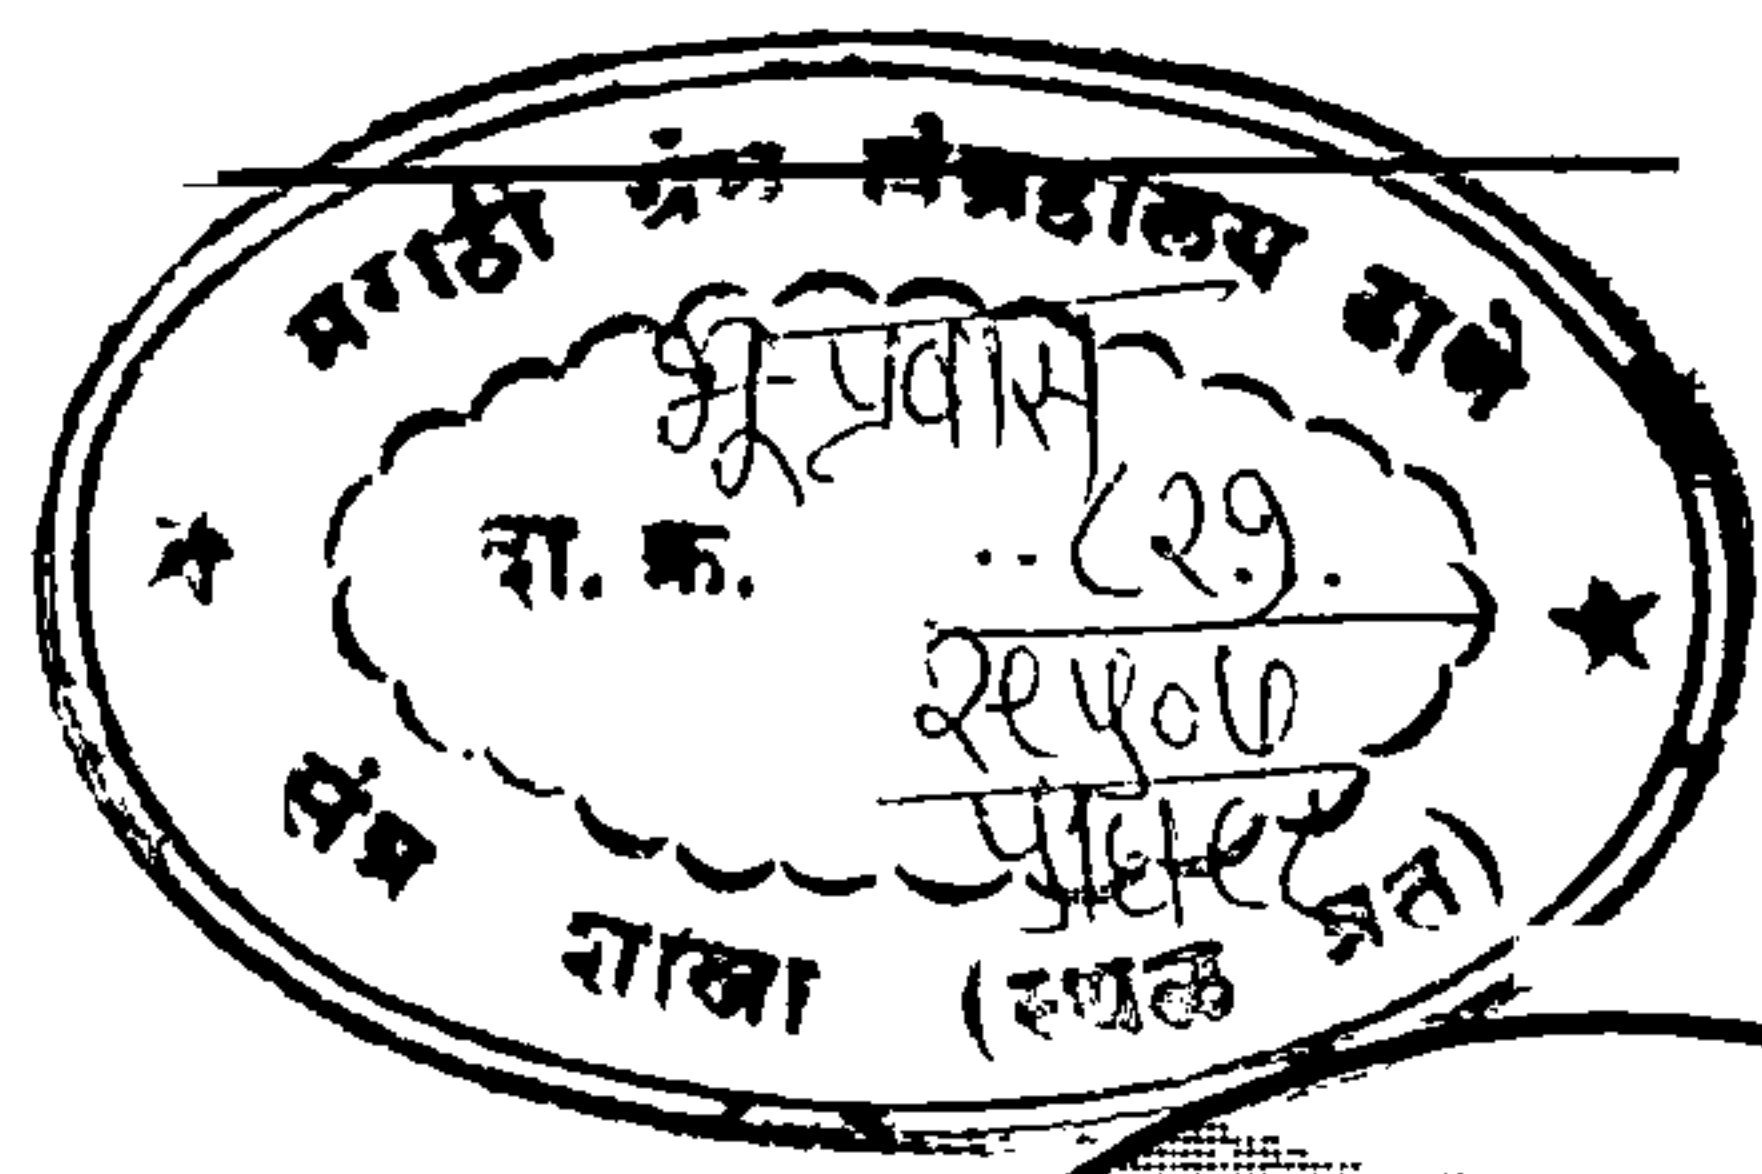 मराठी ग्रंथ संग्रहालय ठाणे
भू-प्रवास
शा. क्र. ..८२७.
२९५०७
संग्र शाखा (स्थळ प्रत)